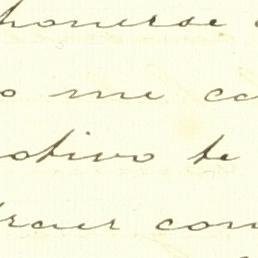 ponerse
o me ca
otivo te
traer con